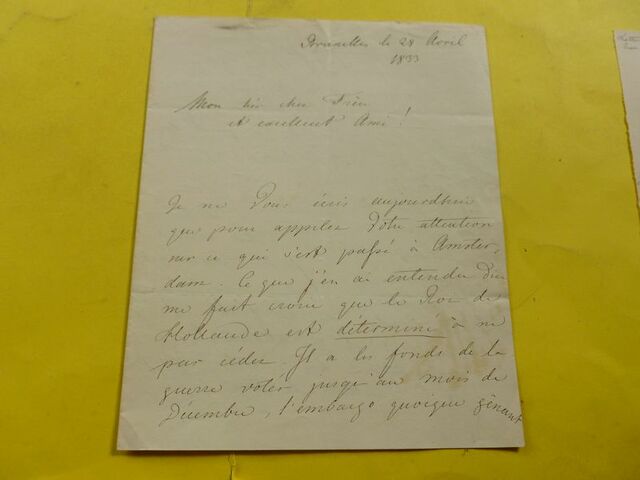 Bruxelles le 28 Avril
1833
Mon très cher Frère
et excellent Ami !
Je ne Vous écris aujourdhui
que pour appeler Votre attention
sur ce qui s'est passé à Amster,
dam. Ce que j'en ai entendu dire
me fait croire que le Roi de
Hollande est déterminé à ne
pas céder. Il a les fonds de la
guerre votés jusqu'au mois de
Décembre, l'embargo quoique gênant